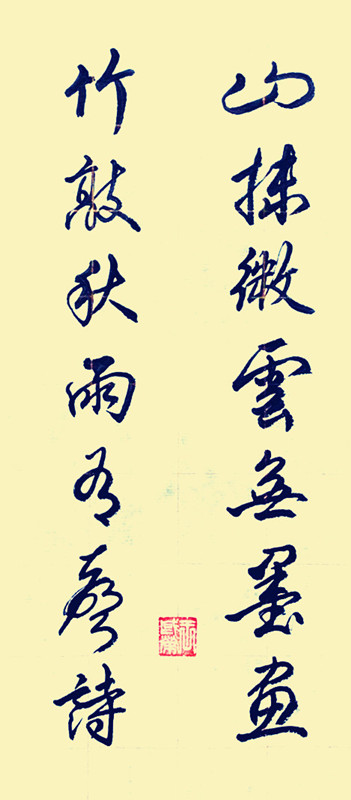 山抹微雲無墨画
竹敲秋雨有聲詩